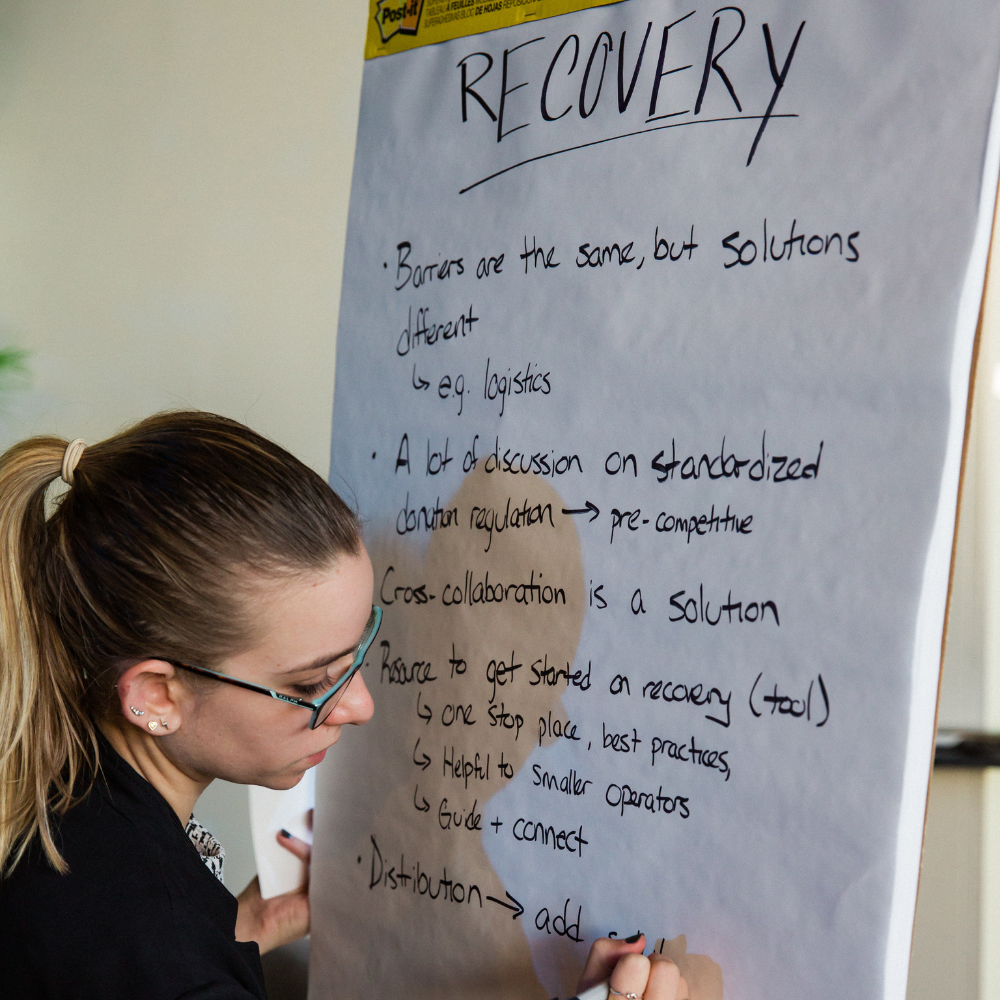 Post-it
TABLEAU À FEUILLES
SUPERADHESIVAS BLOC DE HOJAS REPOSICION
RECOVERY
· Barriers are the same, but solutions
different
↳ e.g. logistics
· A lot of discussion on standardized
donation regulation → pre-competitive
Cross-collaboration is a solution
· Resource to get started on recovery (tool)
↳ one stop place, best practices,
↳ Helpful to smaller operators
↳ Guide + connect
· Distribution → add